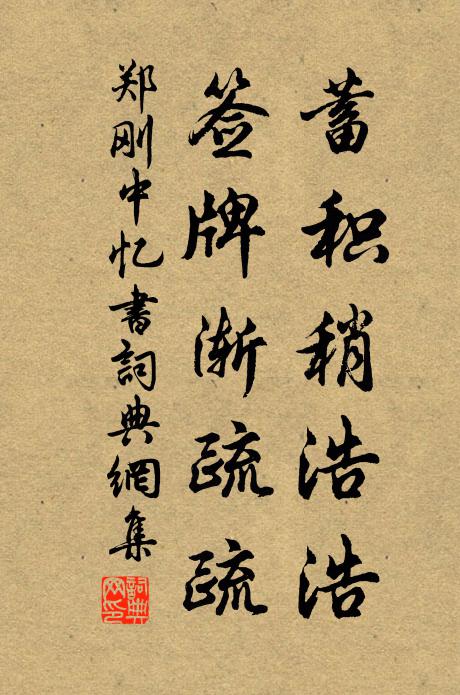 蓄积稍浩浩
签牌渐疏疏
郑刚中忆書詞典網集
詞典网印